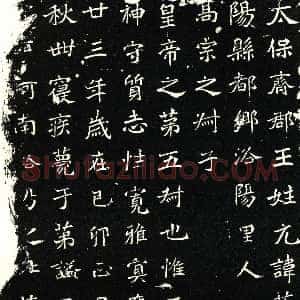 太保齊郡王姓元諱
陽縣都鄉洛陽里人
高宗之叔子
皇帝之第五叔也惟
神守質志性寬雅寡
廿三年歲在己卯正
秋卌寢疾薨于第謚
河南
乃之
Shufaziliao.com